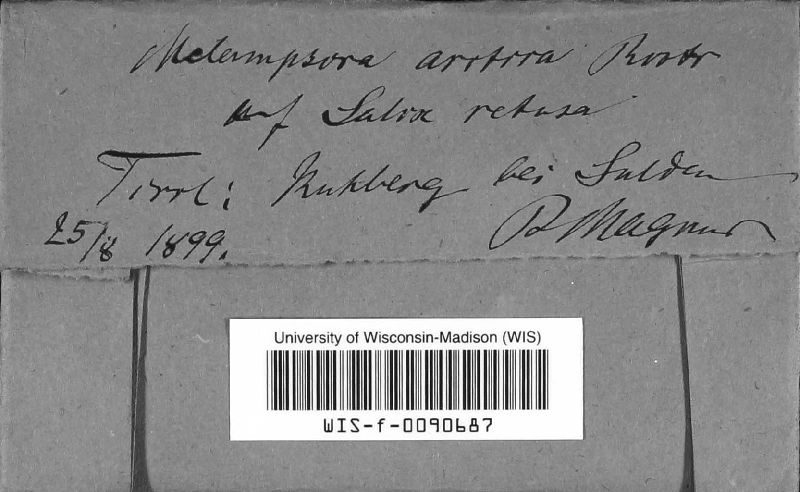 Melampsora arctica Rostr
auf Salix retusa
Tirol: Kuhberg bei Sulden
25/8 1899. P Magnus
University of Wisconsin-Madison (WIS)
WIS-f-0090687